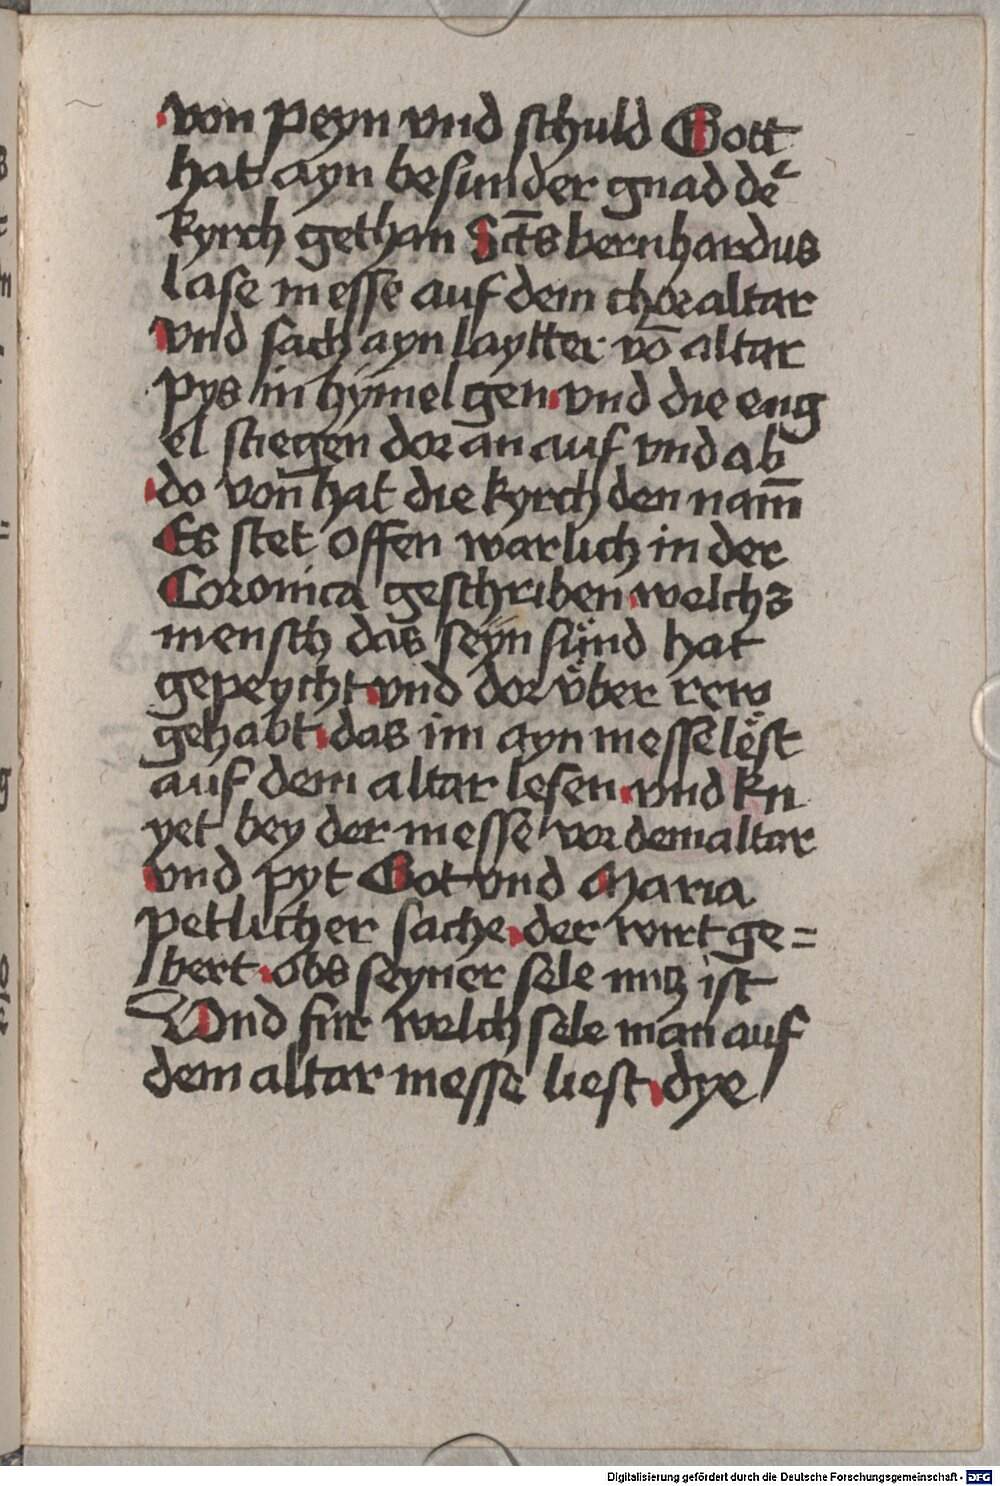 von peyn vnd schuld Gott
hat ayn besunder gnad de᷑
kyrch gethan Sct̄s bernhardus
lase messe auf dem chor altar
vnd sach ayn laytter vō altar
pys in hÿmel gen vnd die eng
el stiegen dor an auf vnd ab
do von̄ hat die kyrch den nam̄
Es stet offen warlich in der
Coronica geschriben welchs
mensch das seÿn sünd hat
gepeycht vnd dor vber rew
gehabt das im ayn messe lest
auf dem altar lesen vnd kn
yet bey der messe vor dem altar
vnd pyt Got vnd Maria
petlicher sache der wirt ge=
bert obs seyner sele nutz ist
Vnd fur welch sele man auf
dem altar messe liest dye
Digitalisierung gefördert durch die Deutsche Forschungsgemeinschaft - DFG